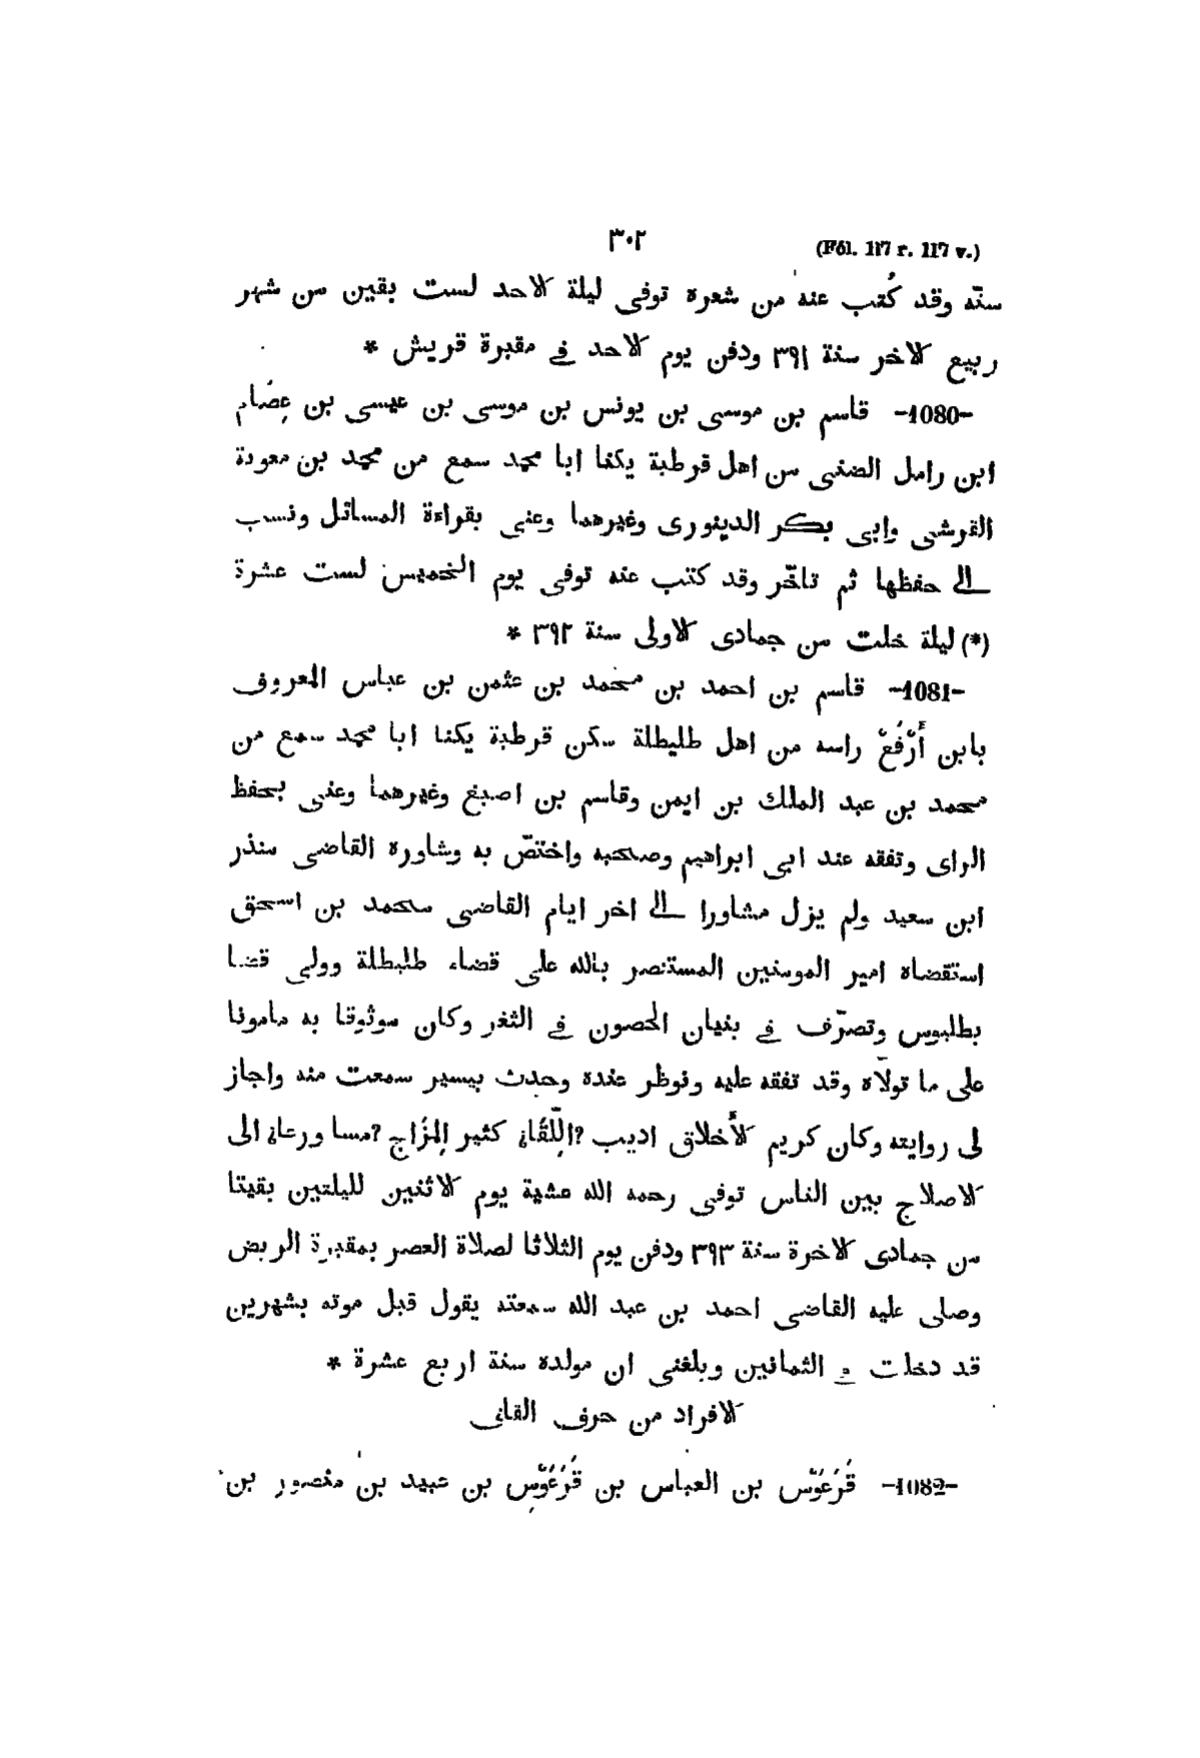 ٣٠٢ (Fól. 117 r. 117 v.)
سنّه وقد كُتب عنه من شعرة توفى ليلة الاحد لست بقين من شهر
ربيع الاخر سنة ٣٩١ ودفن يوم الاحد في مقبرة قريش *
-1080- قاسم بن موسى بن يونس بن موسى بن عيسى بن عِصَام
ابن رامل الضنى من اهل قرطبة يكنا ابا محمد سمع من محمد بن معوية
القرشى وابى بكر الدينورى وغيرهما وعنى بقراءة المسائل ونسب
الى حفظها ثم تاخّر وقد كتب عنه توفى يوم الخميس لست عشرة
(*) ليلة خلت من جمادى الاولى سنة ٣٩٢ *
-1081- قاسم بن احمد بن محمد بن عثمن بن عباس المعروف
بابن أَرْفُعْ راسه من اهل طليطلة سكن قرطبة يكنا ابا محمد سمع من
محمد بن عبد الملك بن ايمن وقاسم بن اصبغ وغيرهما وعنى بحفظ
الراى وتفقه عند ابى ابراهيم وصحبه واختصّ به وشاوره القاضى منذر
ابن سعيد ولم يزل مشاورا الى اخر ايام القاضى محمد بن اسحق
استقضاه امير المومنين المستنصر بالله على قضاء طليطلة وولى قضا
بطليوس وتصرّف في بنيان الحصون في الثغر وكان موثوقا به مامونا
على ما تولّاه وقد تفقه عليه ونوظر عنده وحدث بيسير سمعت منه واجاز
لى روايته وكان كريم الأخلاق اديب ?اللِّقَاء كثير المِزَاج ?مسا ورعا الى
الاصلاح بين الناس توفى رحمه الله عشية يوم الاثنين لليلتين بقيتا
من جمادى الاخرة سنة ٣٩٣ ودفن يوم الثلاثا لصلاة العصر بمقبرة الربض
وصلى عليه القاضى احمد بن عبد الله سمعته يقول قبل موته بشهرين
قد دخلت في الثمانين وبلغنى ان مولده سنة اربع عشرة *
الافراد من حرف القاف
-1082- قَرَعَوْس بن العباس بن قَرَعَوْس بن عبيد بن منصور بن